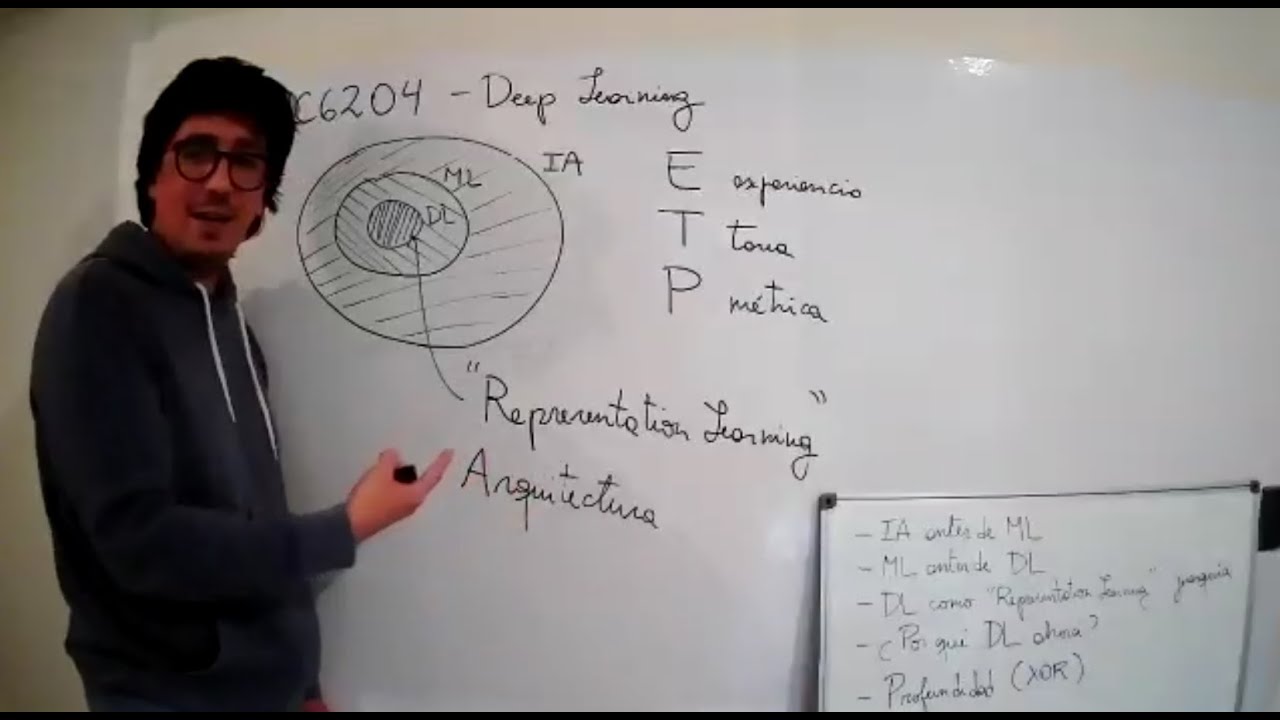 C6204 - Deep Learning
IA
ML
DL
E experiencia
T tarea
P métrica
"Representation Learning"
Arquitectura
- IA antes de ML
- ML antes de DL
- DL como "Representation Learning" jerarquía
- ¿Por qué DL ahora?
- Profundidad (XOR)